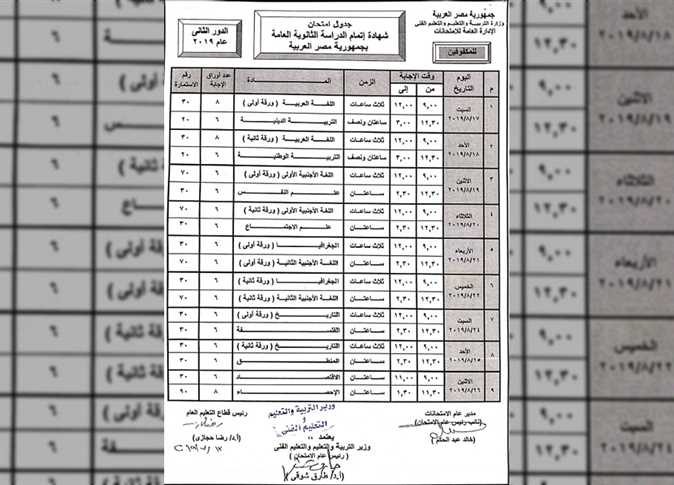 جمهورية مصر العربية
وزارة التربية والتعليم والتعليم الفنى
الإدارة العامة للإمتحانات
للمكفوفين
جدول امتحان
شهادة إتمام الدراسة الثانوية العامة
بجمهورية مصر العربية
الدور الثانى
عام ٢٠١٩
م اليوم التاريخ وقت الإجابة من إلى الزمن المادة عدد أوراق الإجابة رقم الاستمارة
١ السبت ٢٠١٩/٨/١٧ ٩,٠٠ ١٢,٠٠ ثلاث ساعات اللغة العربية ( ورقة أولى ) ٨ ٣٠
١٢,٣٠ ٣,٠٠ ساعتان ونصف التربية الدينية ٦ ٢٠
٢ الأحد ٢٠١٩/٨/١٨ ٩,٠٠ ١٢,٠٠ ثلاث ساعات اللغة العربية ( ورقة ثانية ) ٨ ٣٠
١٢,٣٠ ٣,٠٠ ساعتان ونصف التربية الوطنية ٦ ٢٠
٣ الاثنين ٢٠١٩/٨/١٩ ٩,٠٠ ١٢,٠٠ ثلاث ساعات اللغة الأجنبية الأولى ( ورقة أولى ) ٦ ٧٠
١٢,٣٠ ٢,٣٠ ساعتان علم النفس ٦ ٣٠
٤ الثلاثاء ٢٠١٩/٨/٢٠ ٩,٠٠ ١٢,٠٠ ثلاث ساعات اللغة الأجنبية الأولى ( ورقة ثانية ) ٦ ٧٠
١٢,٣٠ ٢,٣٠ ساعتان علم الاجتماع ٦ ٣٠
٥ الأربعاء ٢٠١٩/٨/٢١ ٩,٠٠ ١٢,٠٠ ثلاث ساعات الجغرافيا ( ورقة أولى ) ٦ ٣٠
١٢,٣٠ ٢,٣٠ ساعتان اللغة الأجنبية الثانية ( ورقة أولى ) ٦ ٧٠
٦ الخميس ٢٠١٩/٨/٢٢ ٩,٠٠ ١٢,٠٠ ثلاث ساعات الجغرافيا ( ورقة ثانية ) ٦ ٣٠
١٢,٣٠ ٢,٣٠ ساعتان اللغة الأجنبية الثانية ( ورقة ثانية ) ٦ ٧٠
٧ السبت ٢٠١٩/٨/٢٤ ٩,٠٠ ١٢,٠٠ ثلاث ساعات التاريخ ( ورقة أولى ) ٦ ٣٠
١٢,٣٠ ٢,٣٠ ساعتان الفلسفة ٦ ٣٠
٨ الأحد ٢٠١٩/٨/٢٥ ٩,٠٠ ١٢,٠٠ ثلاث ساعات التاريخ ( ورقة ثانية ) ٦ ٣٠
١٢,٣٠ ٢,٣٠ ساعتان المنطق ٦ ٣٠
٩ الاثنين ٢٠١٩/٨/٢٦ ٩,٠٠ ١١,٠٠ ساعتان الاقتصاد ٦ ٣٠
١١,٣٠ ١,٣٠ ساعتان الإحصاء ٨ ٩٠
مدير عام الامتحانات
( نائب رئيس عام الامتحان )
(خالد عبد الحكم)
وزير التربية والتعليم
و
التعليم الفنى
يعتمد ،،
وزير التربية والتعليم والتعليم الفنى
( رئيس عام الامتحان )
(أ.د/ طارق شوقى)
رئيس قطاع التعليم العام
(أ.د/ رضا حجازى)